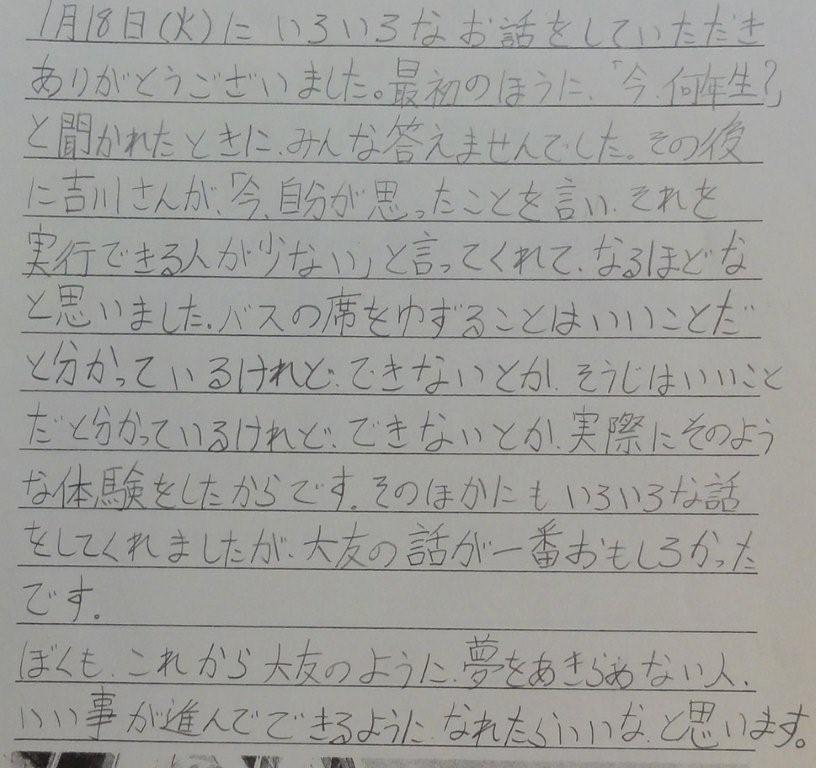 1月18日(火)に いろいろなお話をしていただき
ありがとうございました。最初のほうに、「今、何年生?」
と聞かれたときに、みんな答えませんでした。その後
に吉川さんが、「今、自分が思ったことを言い、それを
実行できる人が少ない」と言ってくれて、なるほどな
と思いました。バスの席をゆずることはいいことだ
と分かっているけれど、できないとか、そうじはいいこと
だと分かっているけれど、できないとか、実際にそのよう
な体験をしたからです。そのほかにも いろいろな話
をしてくれましたが、大友の話が一番おもしろかった
です。
ぼくも、これから大友のように、夢をあきらめない人、
いい事が進んでできるように、なれたらいいな、と思います。